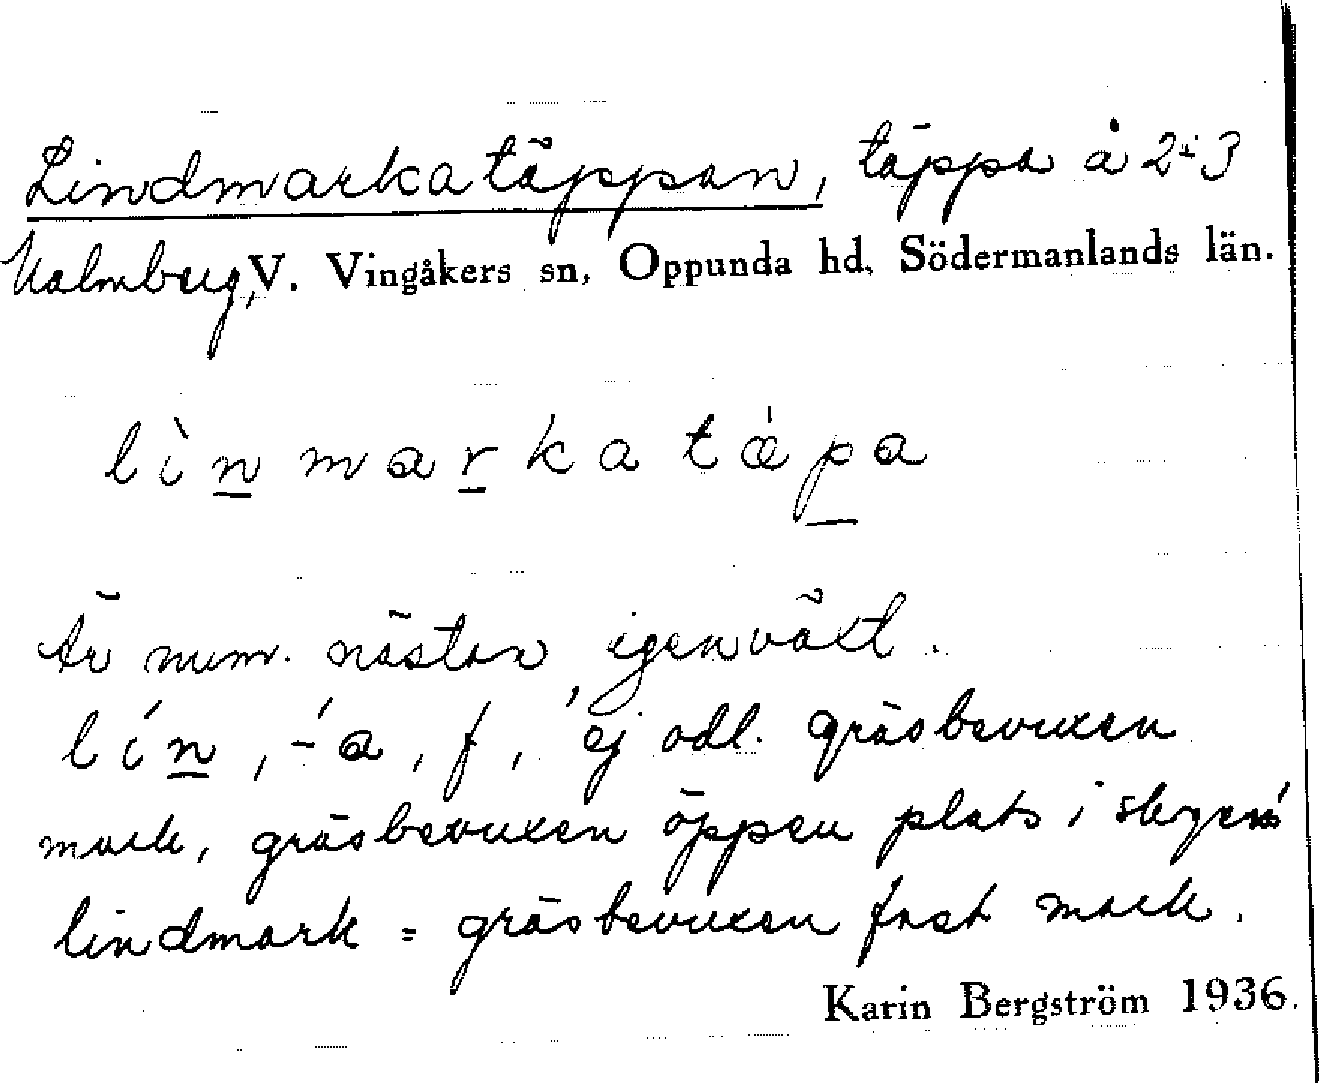 Lindmarkatäppan, täppa å 2÷3
Kalmberg, V. Vingåkers sn, Oppunda hd, Södermanlands län.
lìnmarkatǽpa
Är num. nästan igenväxt.
lín, -́a, f, ej odl. gräsbevuxen
mark, gräsbevuxen öppen plats i skogen
lindmark = gräsbevuxen fast mark.
Karin Bergström 1936.